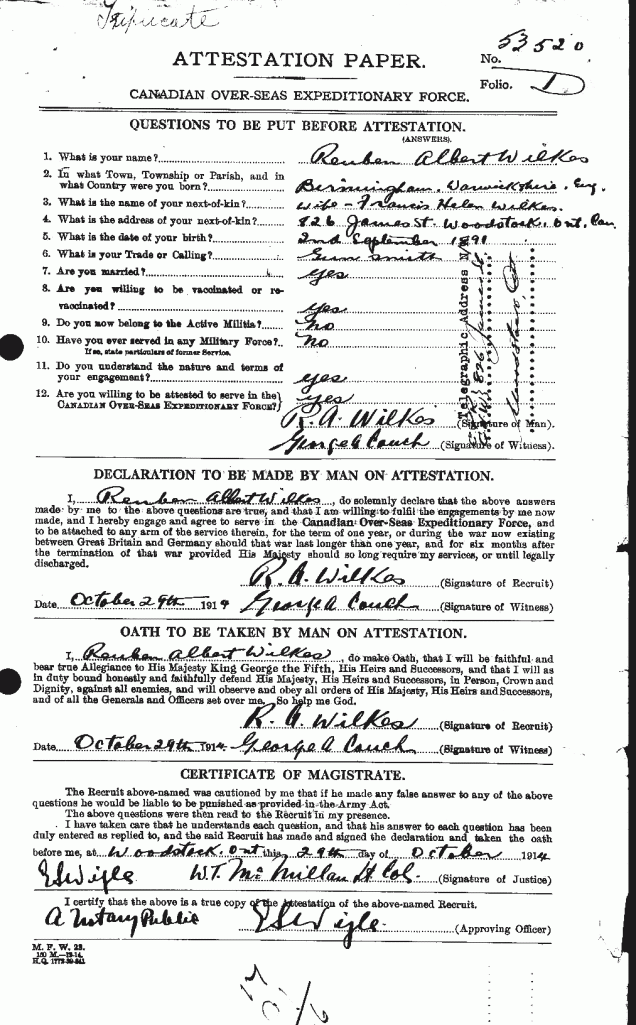 Triplicate
ATTESTATION PAPER.
No. 53520
Folio. D
CANADIAN OVER-SEAS EXPEDITIONARY FORCE.
QUESTIONS TO BE PUT BEFORE ATTESTATION.
(ANSWERS).
1. What is your name? Reuben Albert Wilkes
2. In what Town, Township or Parish, and in
what Country were you born? Birmingham, Warwickshire, Eng.
3. What is the name of your next-of-kin? Wife - Francis Helen Wilkes.
4. What is the address of your next-of-kin? 826 James St. Woodstock, Ont, Can.
5. What is the date of your birth? 2nd September 1891
6. What is your Trade or Calling? Gun smith
7. Are you married? yes
8. Are you willing to be vaccinated or re-
vaccinated? yes
9. Do you now belong to the Active Militia? no
10. Have you ever served in any Military Force? no
If so, state particulars of former Service.
11. Do you understand the nature and terms of
your engagement? yes
12. Are you willing to be attested to serve in the
CANADIAN OVER-SEAS EXPEDITIONARY FORCE? yes
R. A. Wilkes (Signature of Man).
George A Couch (Signature of Witness).
Telegraphic Address N/K
826 James St
Woodstock, Ont
DECLARATION TO BE MADE BY MAN ON ATTESTATION.
I, Reuben Albert Wilkes, do solemnly declare that the above answers
made by me to the above questions are true, and that I am willing to fulfil the engagements by me now
made, and I hereby engage and agree to serve in the Canadian Over-Seas Expeditionary Force, and
to be attached to any arm of the service therein, for the term of one year, or during the war now existing
between Great Britain and Germany should that war last longer than one year, and for six months after
the termination of that war provided His Majesty should so long require my services, or until legally
discharged.
R. A. Wilkes (Signature of Recruit)
Date October 29th 1914 George A Couch (Signature of Witness)
OATH TO BE TAKEN BY MAN ON ATTESTATION.
I, Reuben Albert Wilkes, do make Oath, that I will be faithful and
bear true Allegiance to His Majesty King George the Fifth, His Heirs and Successors, and that I will as
in duty bound honestly and faithfully defend His Majesty, His Heirs and Successors, in Person, Crown and
Dignity, against all enemies, and will observe and obey all orders of His Majesty, His Heirs and Successors,
and of all the Generals and Officers set over me. So help me God.
R. A. Wilkes (Signature of Recruit)
Date October 29th 1914 George A Couch (Signature of Witness)
CERTIFICATE OF MAGISTRATE.
The Recruit above-named was cautioned by me that if he made any false answer to any of the above
questions he would be liable to be punished as provided in the Army Act.
The above questions were then read to the Recruit in my presence.
I have taken care that he understands each question, and that his answer to each question has been
duly entered as replied to, and the said Recruit has made and signed the declaration and taken the oath
before me, at Woodstock. Ont this 29th day of October 1914
ESWigle W.T. McMillan Lt Col. (Signature of Justice)
I certify that the above is a true copy of the Attestation of the above-named Recruit.
A Notary Public ESWigle. (Approving Officer)
M. F. W. 23.
150 M.-12-14.
H.Q. 1772-39-841